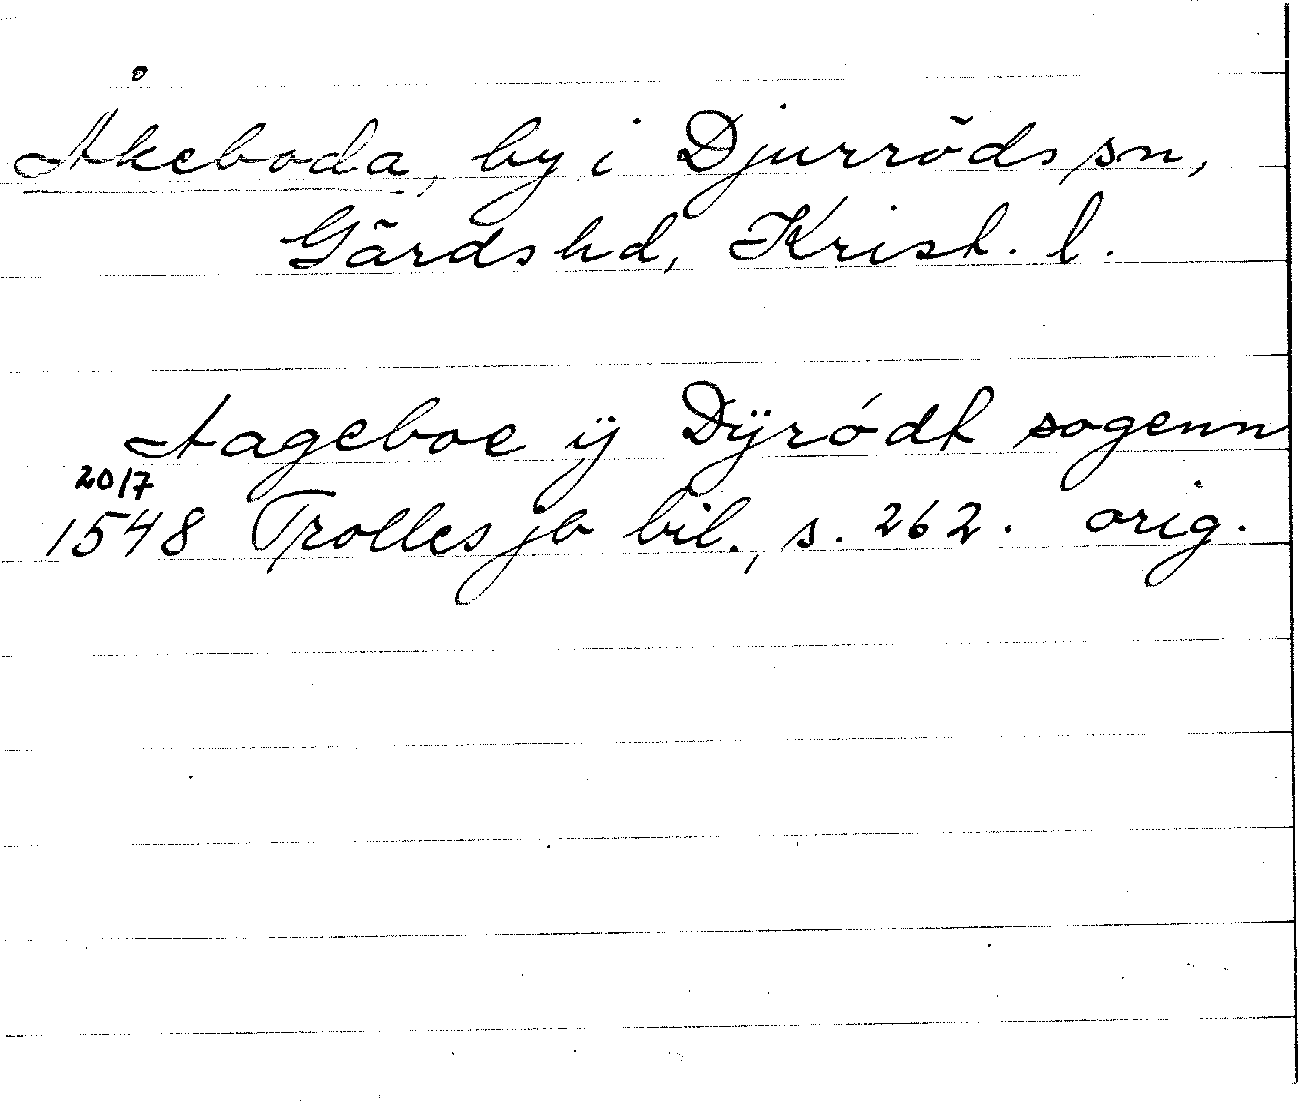 Åkeboda, by i Djurröds sn,
Gärds hd, Krist. l.
Aageboe ÿ Dÿródt sogenn
20/7
1548 Trolles jb bil., s. 262. orig.